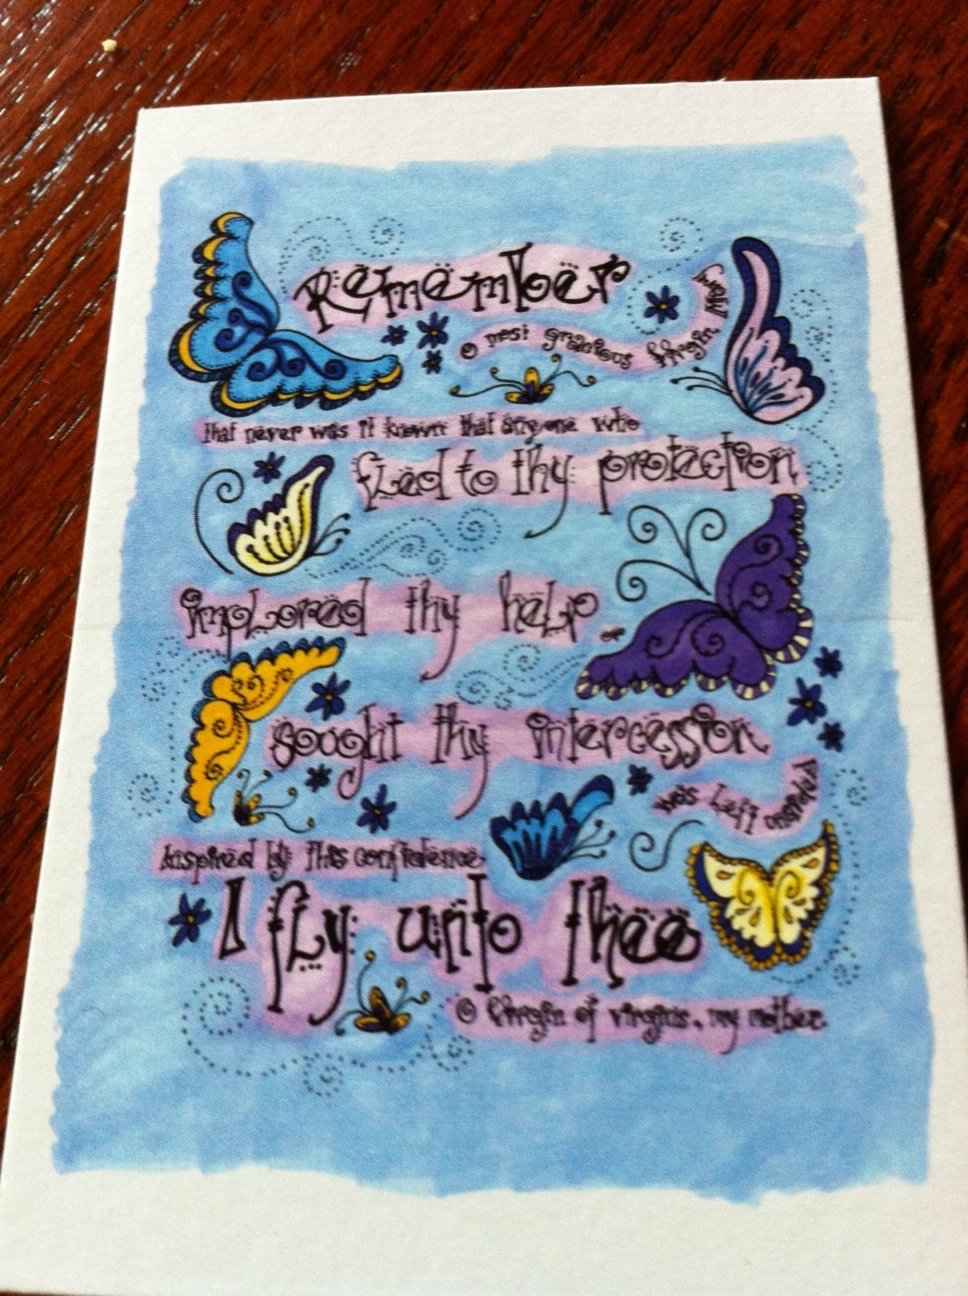 Remember
O most gracious Virgin Mary
that never was it known that any one who
fled to thy protection
implored thy help or
sought thy intercession
was left unaided
Inspired by this confidence
I fly unto thee
O Virgin of virgins, my mother